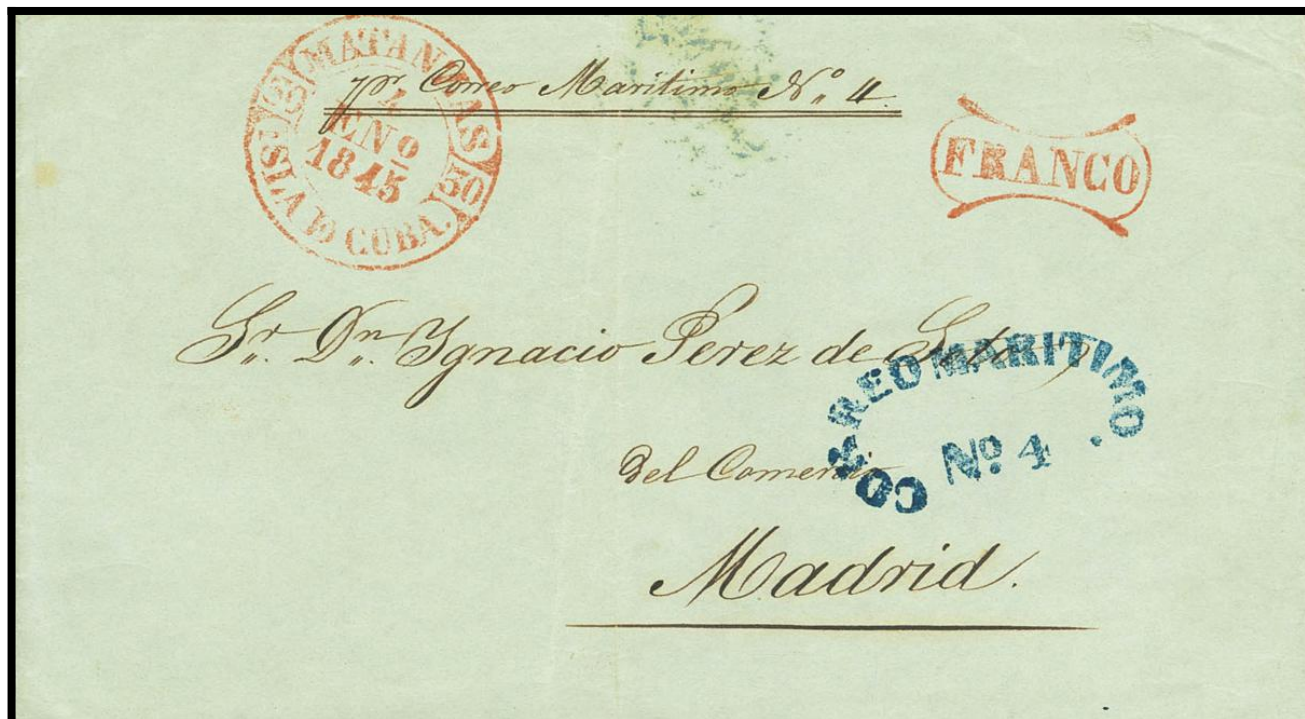 MATANZAS
4
ENº
1845
30
YSLA DE CUBA.
pr. Correo Maritimo Nº. 4.
FRANCO
Sr. Dn. Ygnacio Perez de Soto,
CORREO MARITIMO
Nº. 4
del Comercio
Madrid.